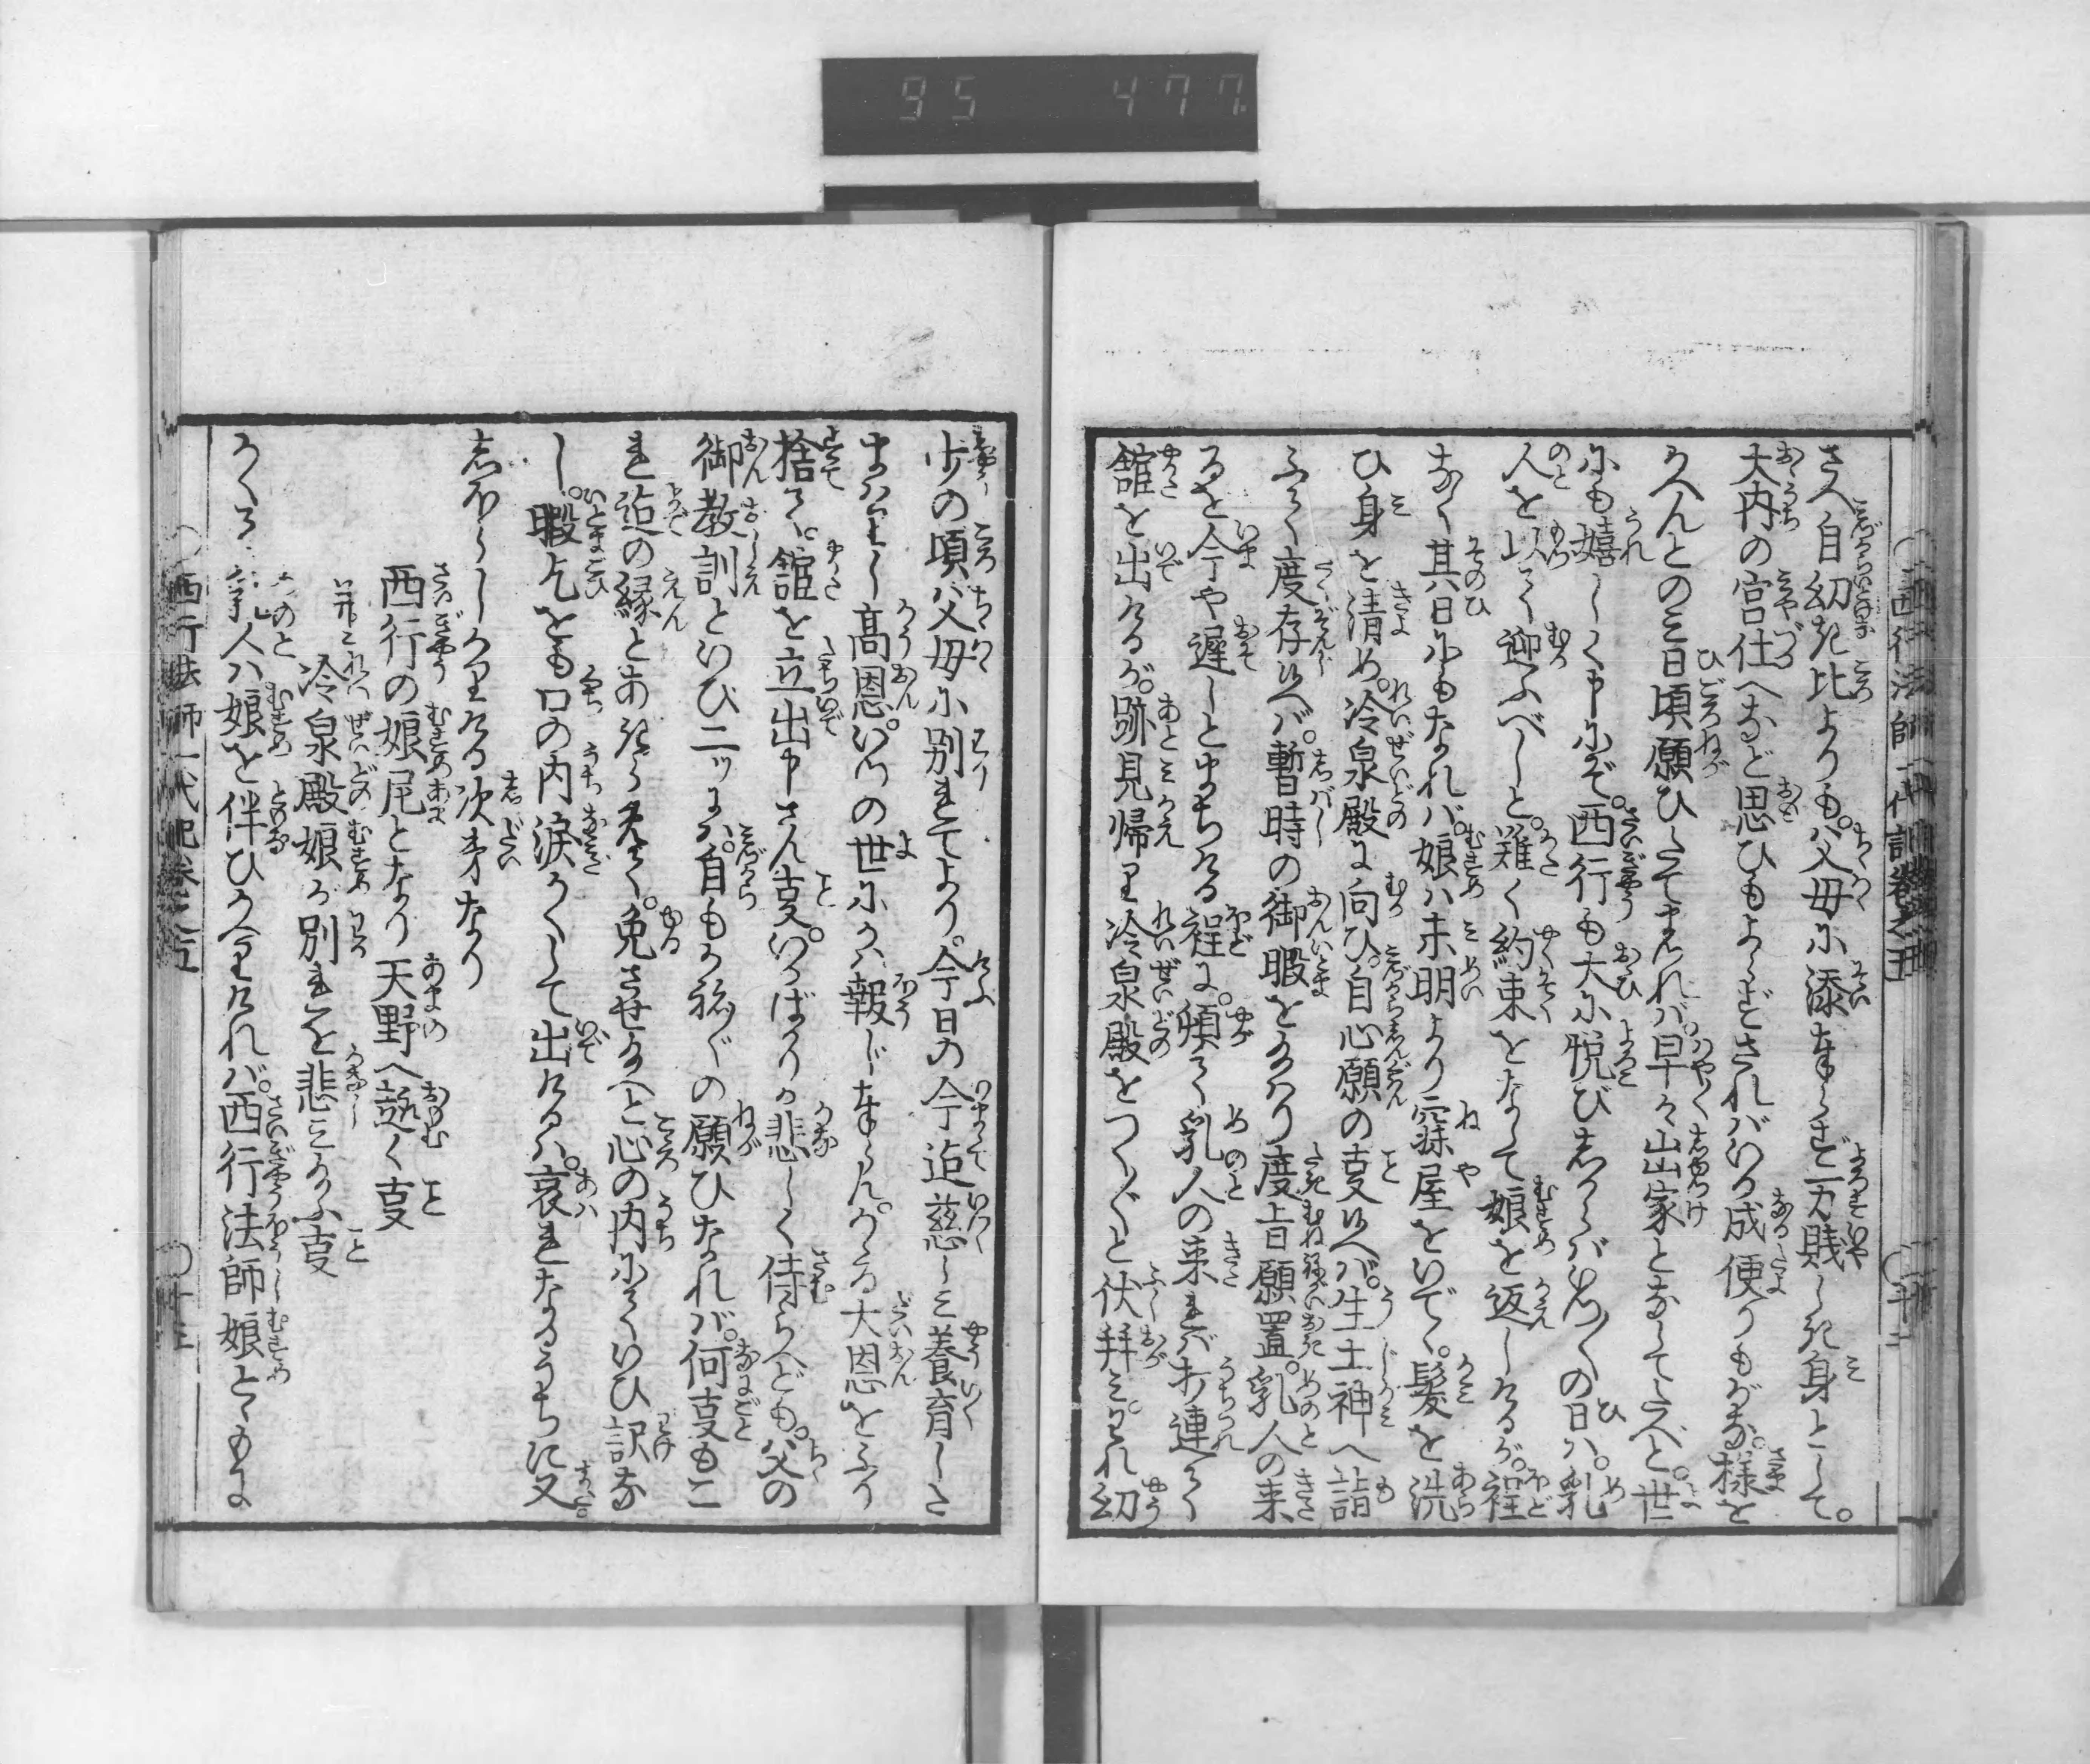 さへ自幼き比よりも。父母に添奉らず万賤しき身として。
大内の宮仕へなど思ひもよらずされバいかなる成便りもがな。様を
かへんとの三日頃願ひしてまかれバ早々出家となして給へと。世
にも嬉しく申にぞ。西行も大に悦びしからバ何々の日ハ。乳
人を以て迎ふべしと。難く約束をなして娘を返しけるが。程
なく其日にもなれバ。娘ハ未明より寐屋をいでゝ。髪を洗
ひ身を清め。冷泉殿に向ひ。自心願の事候へバ。生土神へ詣
ふて度存候へバ。暫時の御暇を給ハり度旨願置。乳人の来
るを今や遅しとまちける程に。頓て乳人の来れバ打連て
舘を出けるが。跡見帰り冷泉殿をつく〲と伏拝ミ。われ幼
少の頃父母に別れてより。今日の今迄慈しミ養育した
まハりし高恩。いつの世にかハ報じ奉らん。かゝる大恩をふり
捨て。舘を立出申さん事。いかばかりか悲しく侍らへども。父の
御教訓といひ二ッにハ。自もかねぐの願ひなれバ。何事もこ
れ迄の縁とあきらめて。免させ給へと心の内にていひ訳な
し。暇乞をも口の内涙かくして出けるハ。哀れなるうちに又
しほらしかりける次第なり
西行の娘尼となり天野へ趣く事
并ニ冷泉殿娘か別れを悲ミ給ふ事
かくて乳人ハ娘を伴ひかへりけれバ。西行法師娘とゝもに
西行法師一代記巻之五